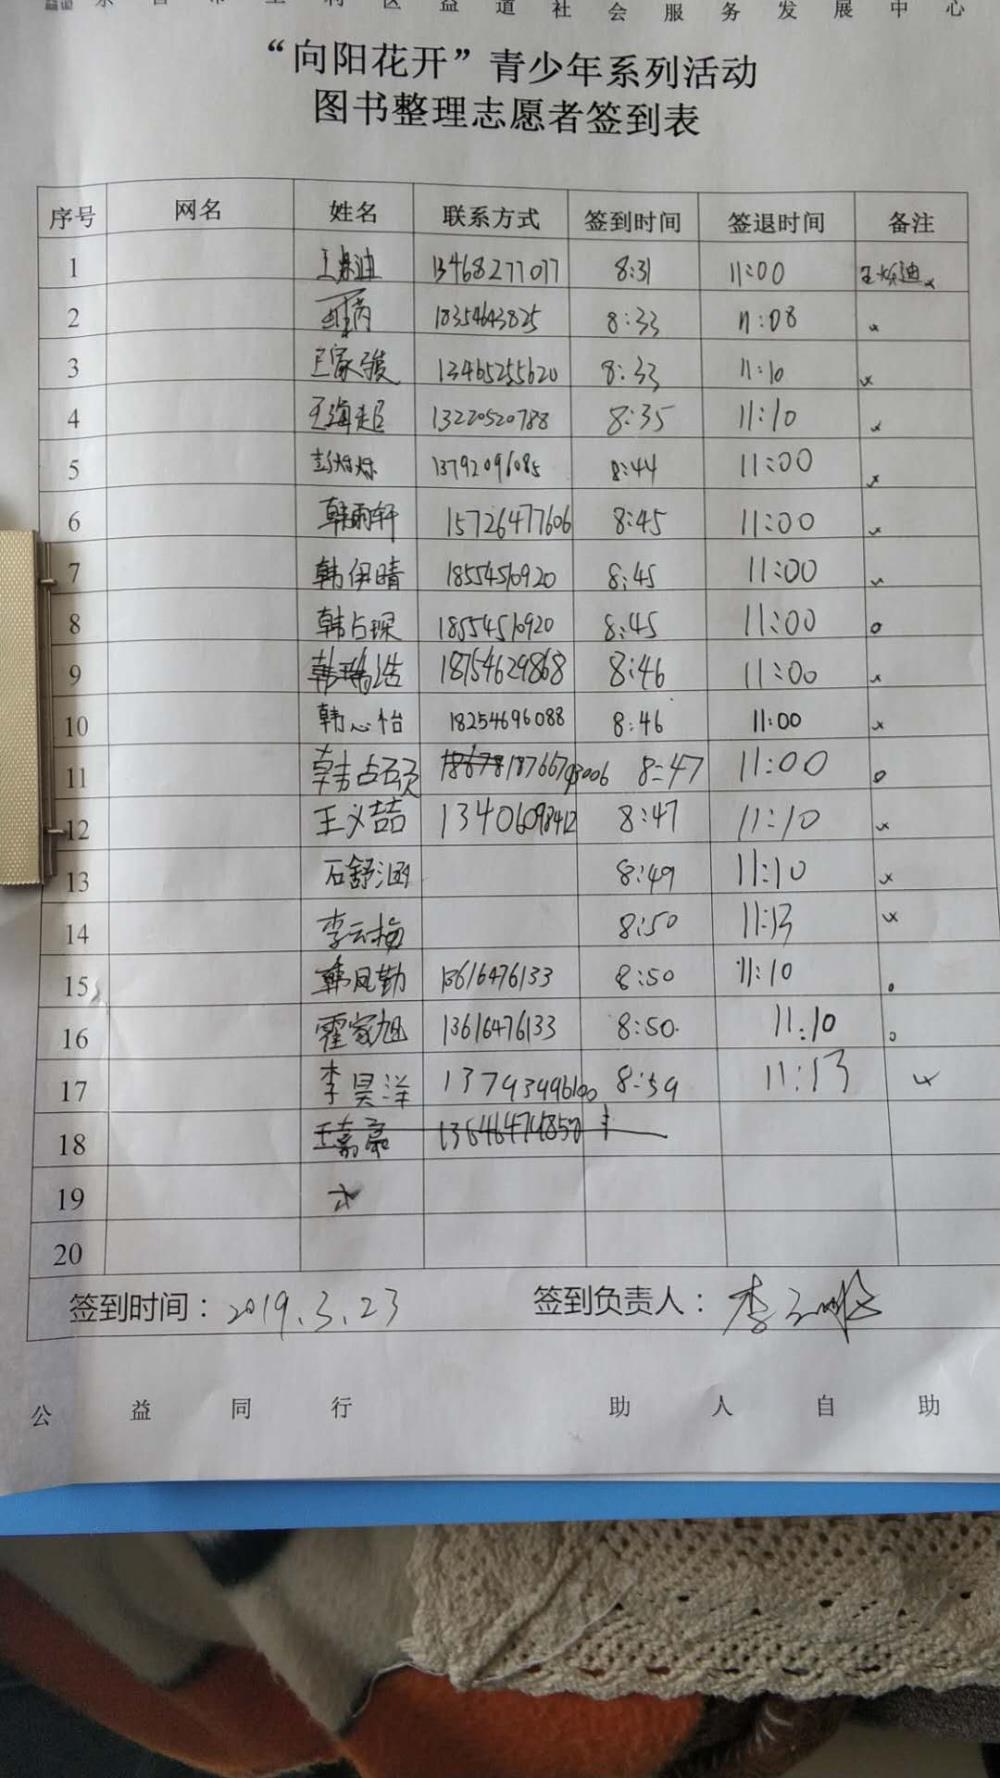 区益道社会服务发展中心
“向阳花开”青少年系列活动
图书整理志愿者签到表
序号 网名 姓名 联系方式 签到时间 签退时间 备注
1 13468277077 8:31 11:00
2 18354643825 8:33 11:08
3 王家骏 13465255620 8:33 11:10
4 王海超 13220520788 8:35 11:10
5 13792096085 8:44 11:00
6 韩雨轩 15726477606 8:45 11:00
7 韩伊晴 18554510920 8:45 11:00
8 韩占琛 18554510920 8:45 11:00
9 韩瑞浩 18754629868 8:46 11:00
10 韩心怡 18254696088 8:46 11:00
11 韩占硕 8:47 11:00
12 王义喆 13406098412 8:47 11:10
13 石舒涵 8:49 11:10
14 李云梅 8:50 11:13
15 韩凤勤 13616476133 8:50 11:10
16 霍家旭 13616476133 8:50 11:10
17 李昊洋 13793496100 8:59 11:13
18 王嘉豪
19
20
签到时间：2019.3.23 签到负责人：
公益同行 助人自助